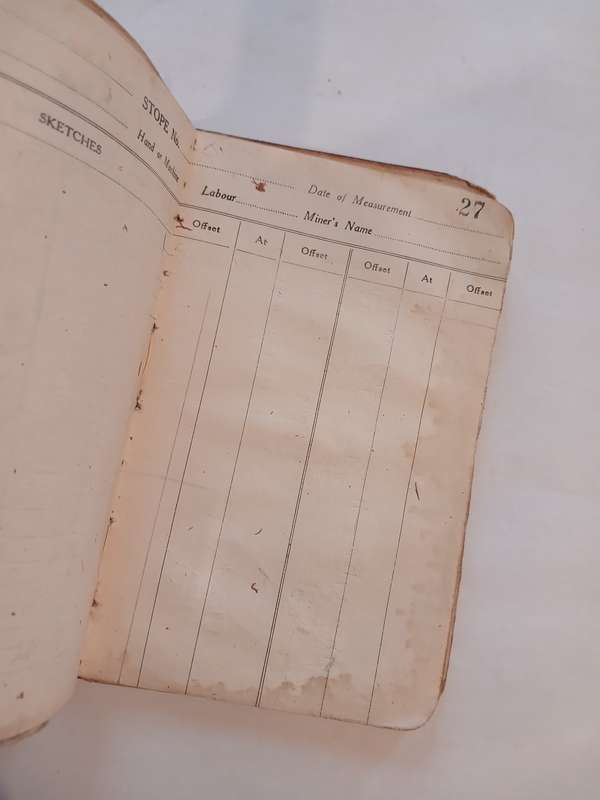 SKETCHES
STOPE No.
Hand or Machine
Date of Measurement
27
Labour
Miner's Name
Offset At Offset Offset At Offset